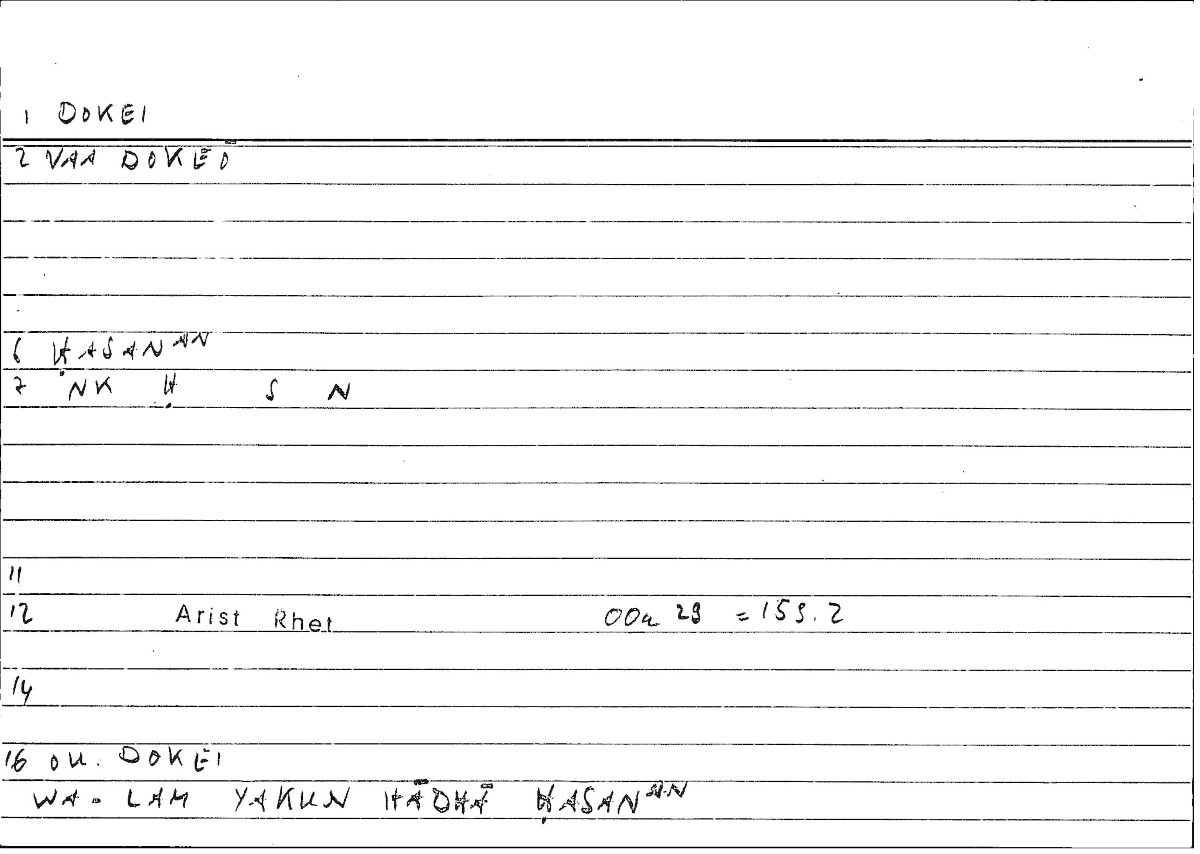 1 DOKEI
2 VAA DOKEŌ
6 ḤASANᴬᴺ
7 NK Ḥ S N
11
12 Arist Rhet 00a 29 =159.2
14
16 OU. DOKEI
WA- LAM YAKUN HĀDHĀ ḤASANᴬᴺ